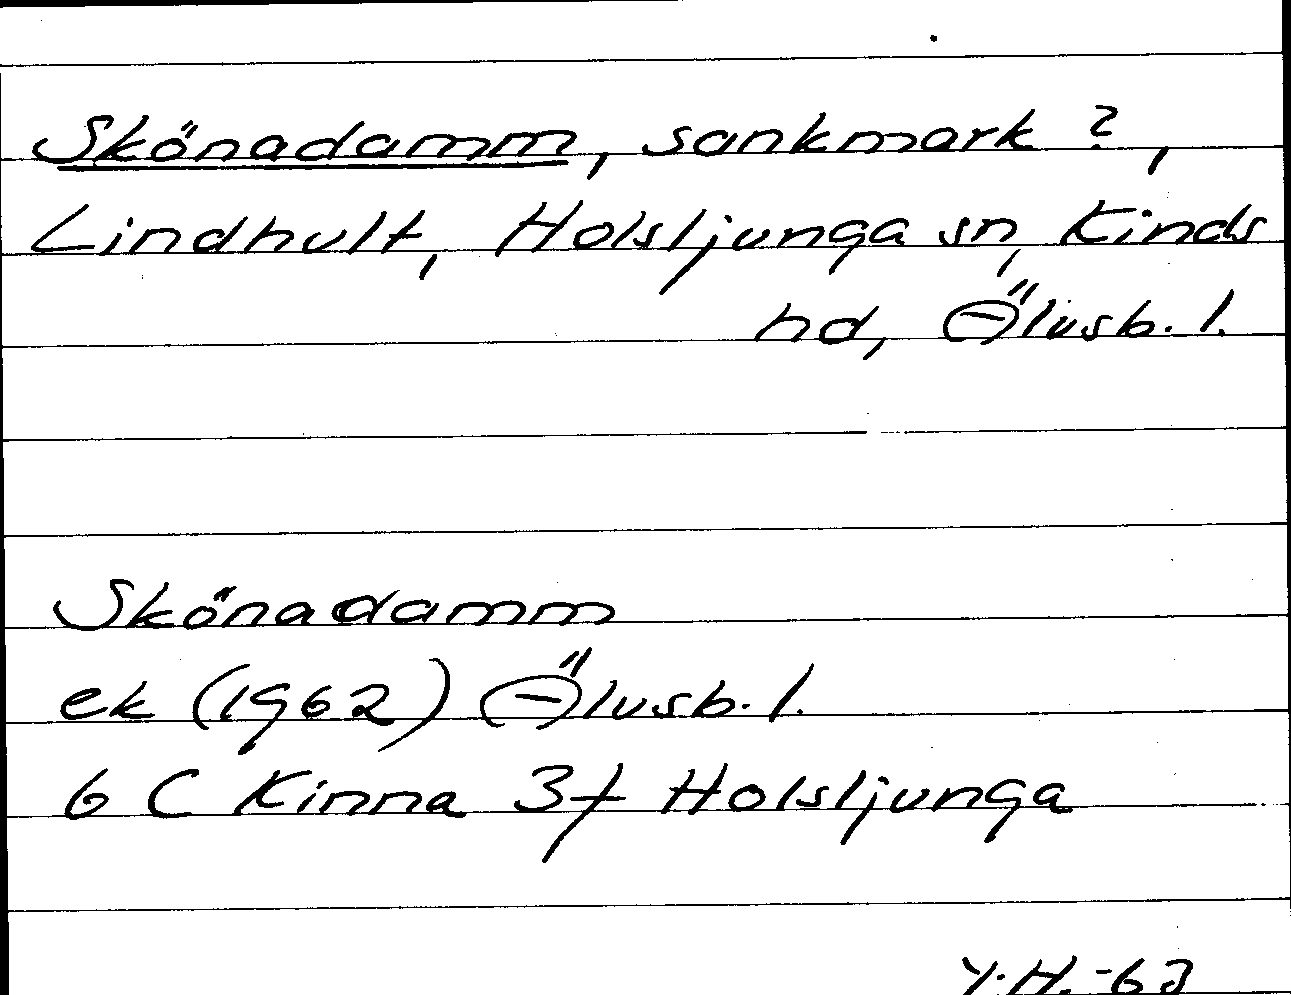 Skönadamm, sankmark ?,
Lindhult, Holsljunga sn, Kinds
hd, Älvsb. l.
Skönadamm
ek (1962) Älvsb. l.
6 C Kinna 3f Holsljunga
Y.H. -63